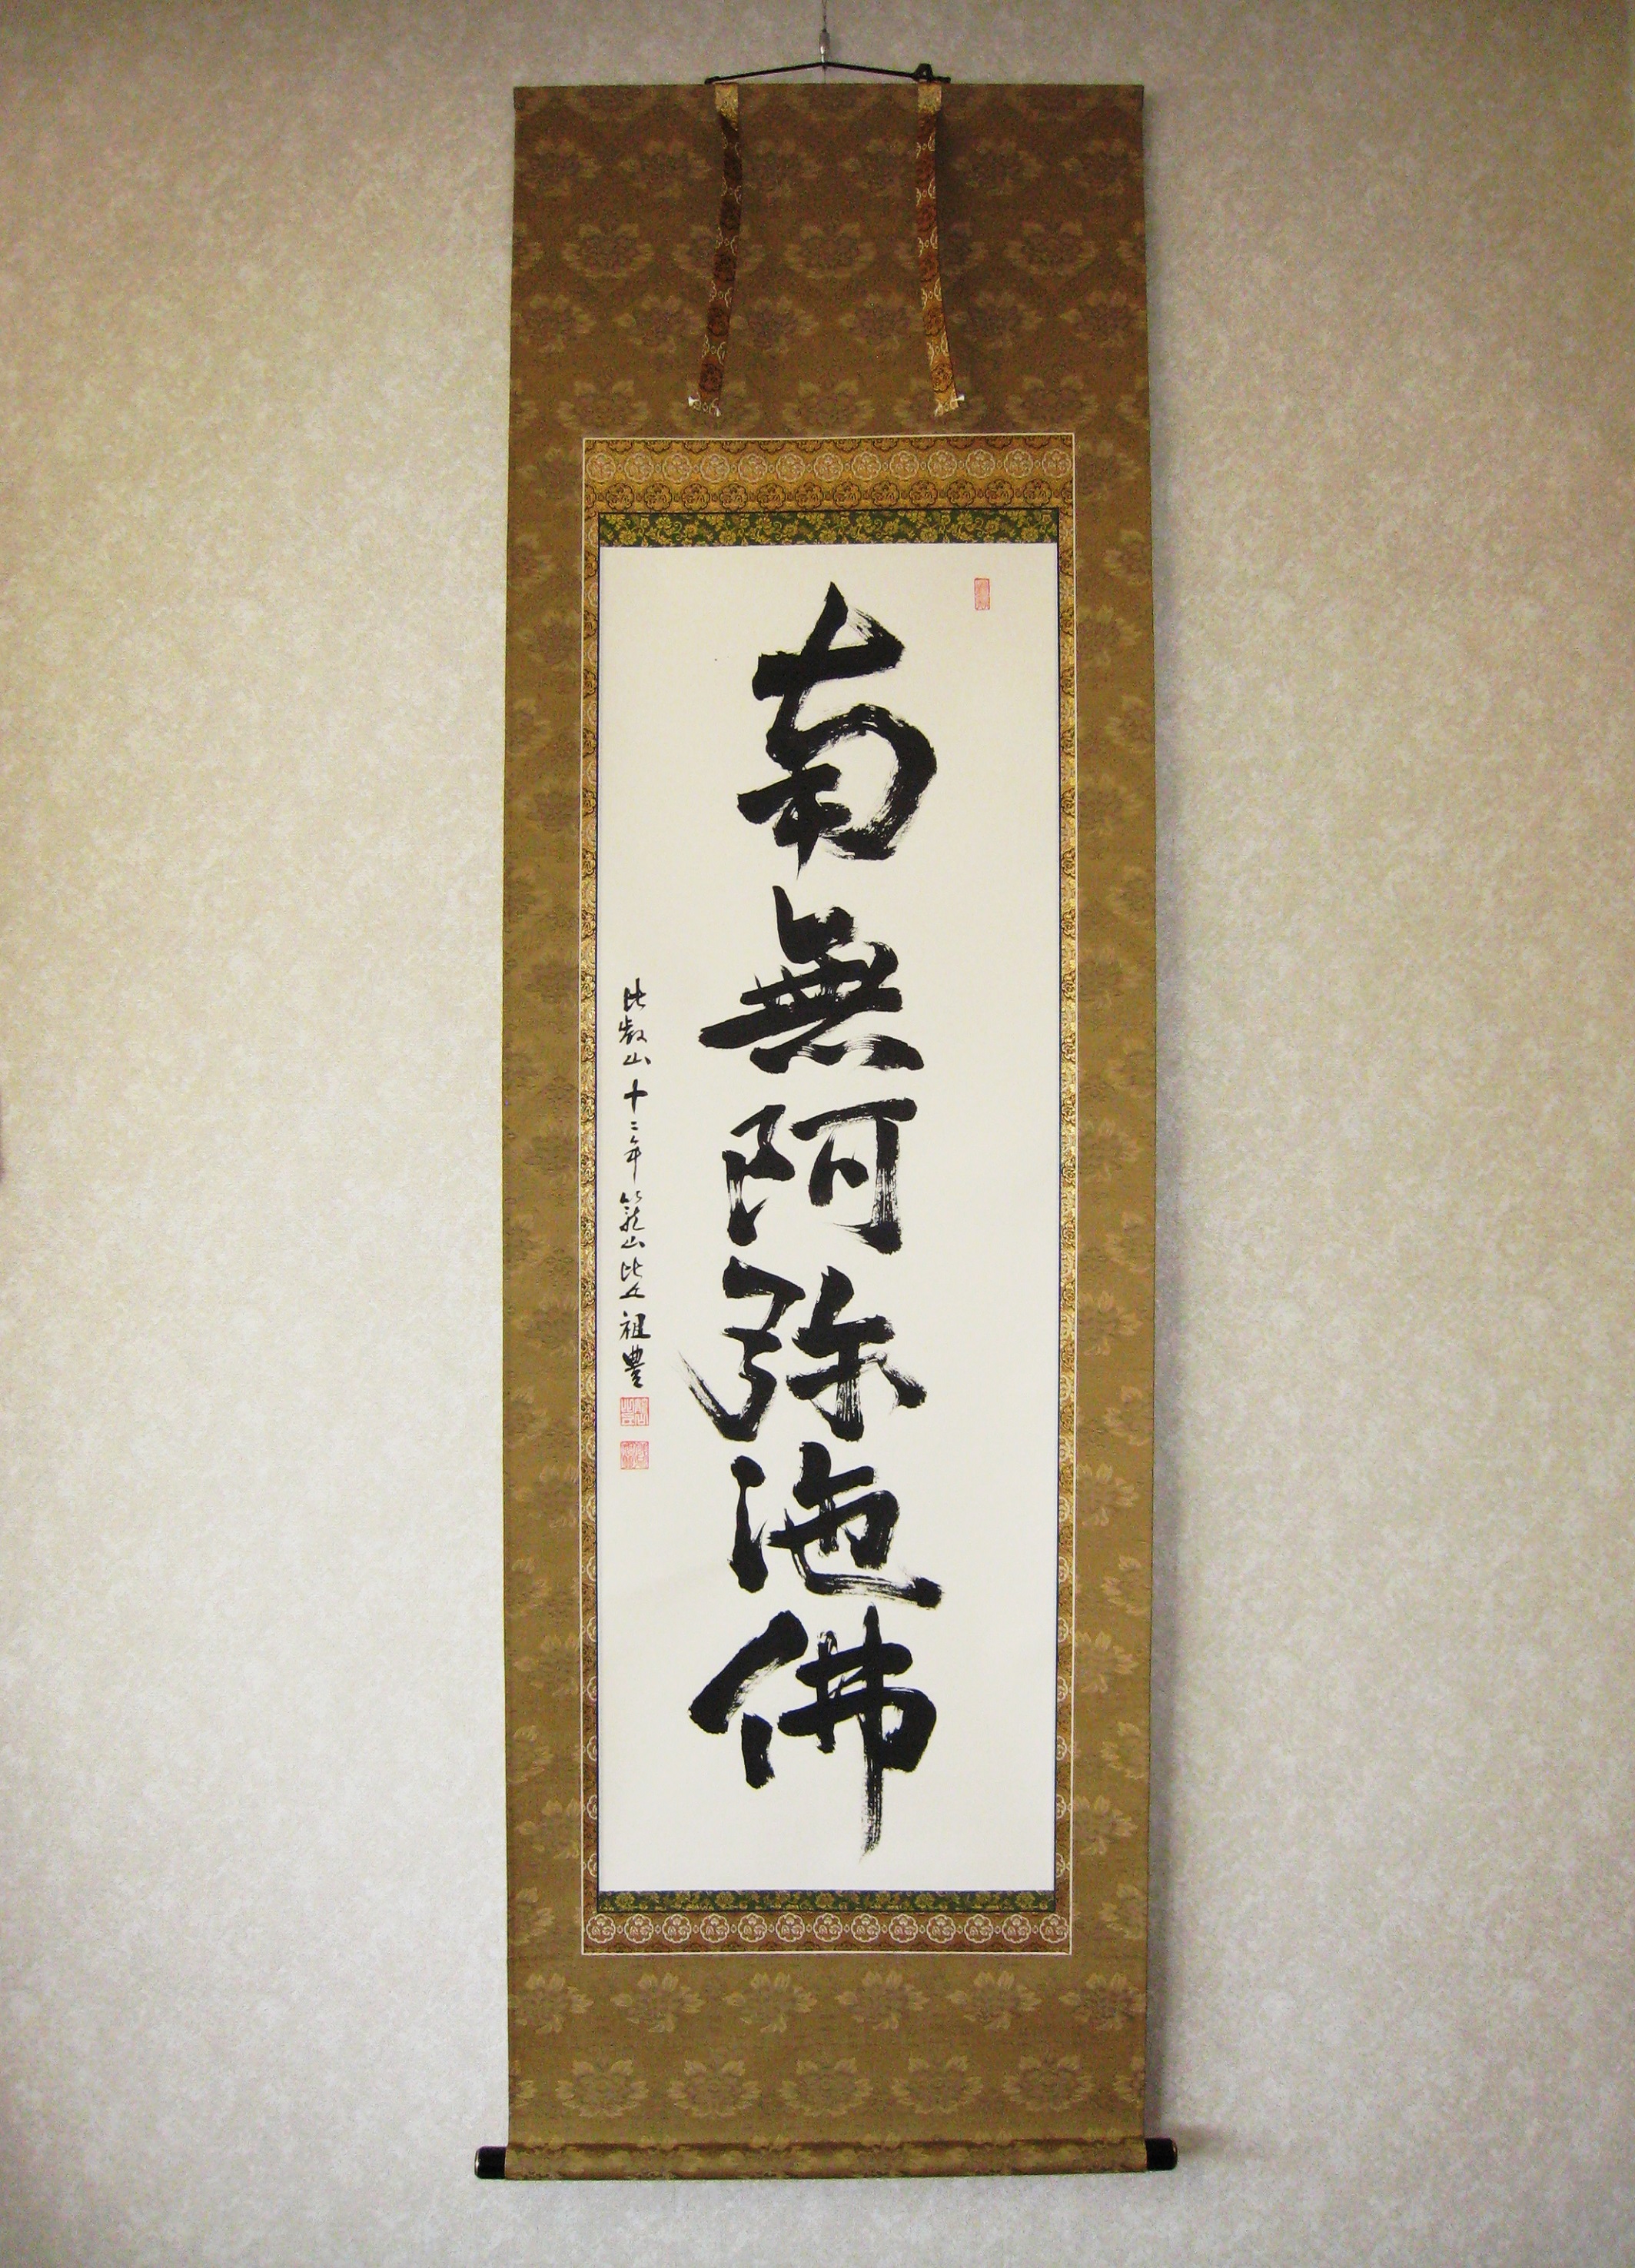 南無阿弥陁佛
比叡山十二年籠山比丘祖豊